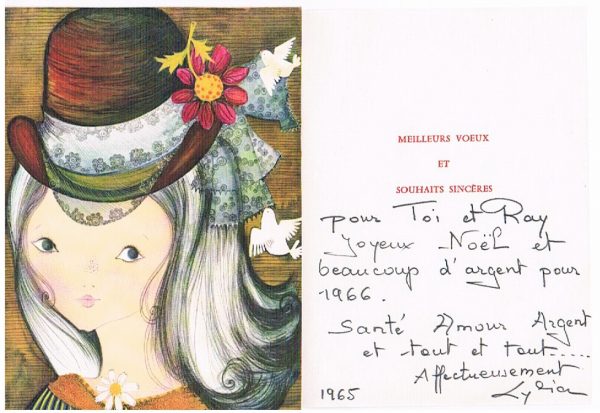 MEILLEURS VOEUX
ET
SOUHAITS SINCÈRES
pour Toi et Ray
Joyeux Noël et
beaucoup d'argent pour
1966.
Santé Amour Argent
et tout et tout.....
Affectueusement
1965 Lydia